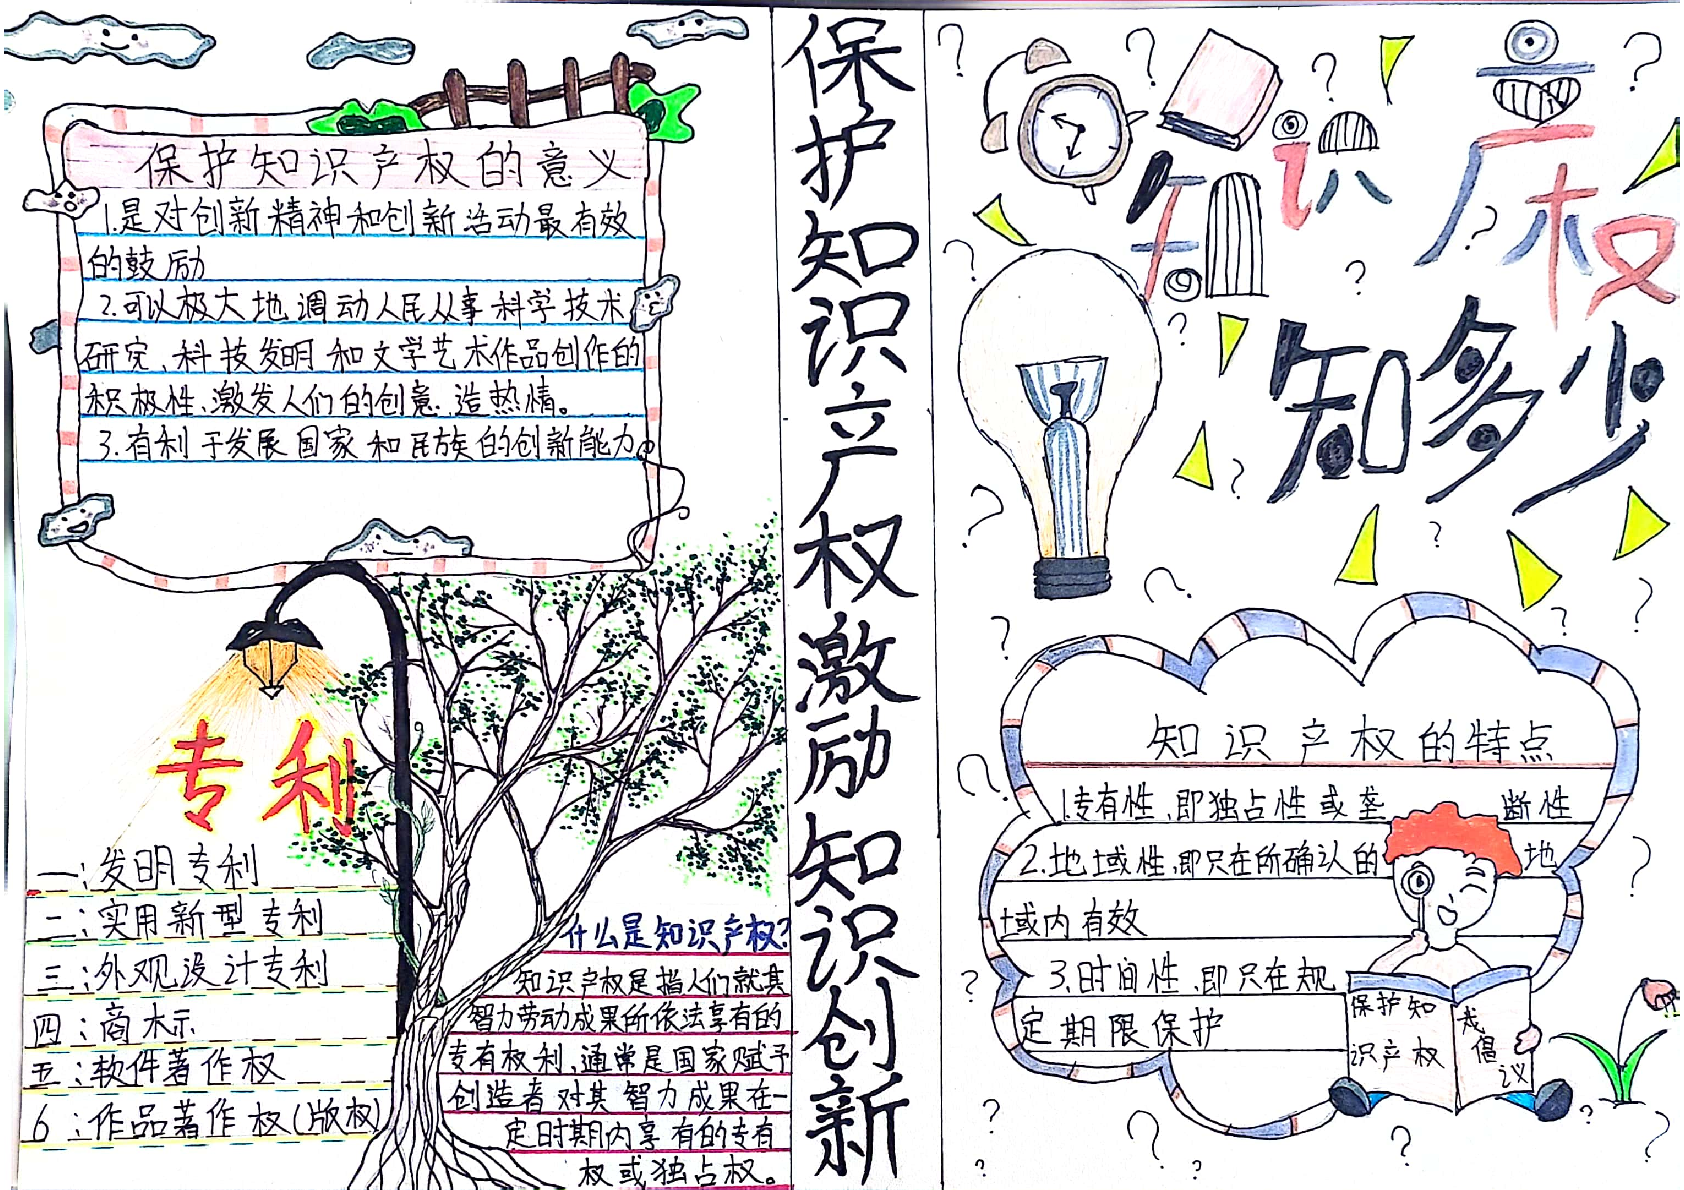 保护知识产权的意义
1.是对创新精神和创新活动最有效
的鼓励
2.可以极大地调动人民从事科学技术
研究、科技发明和文学艺术作品创作的
积极性、激发人们的创意、造热情。
3.有利于发展国家和民族的创新能力。
专利
一:发明专利
二:实用新型专利
三:外观设计专利
四:商标
五:软件著作权
6:作品著作权(版权)
什么是知识产权?
知识产权是指人们就其
智力劳动成果所依法享有的
专有权利,通常是国家赋予
创造者对其智力成果在一
定时期内享有的专有
权或独占权。
保护知识产权激励知识创新
知识产权
知多少
知识产权的特点
1.专有性、即独占性或垄断性
2.地域性、即只在所确认的地
域内有效
3.时间性、即只在规
定期限保护
保护知
识产权
我倡议